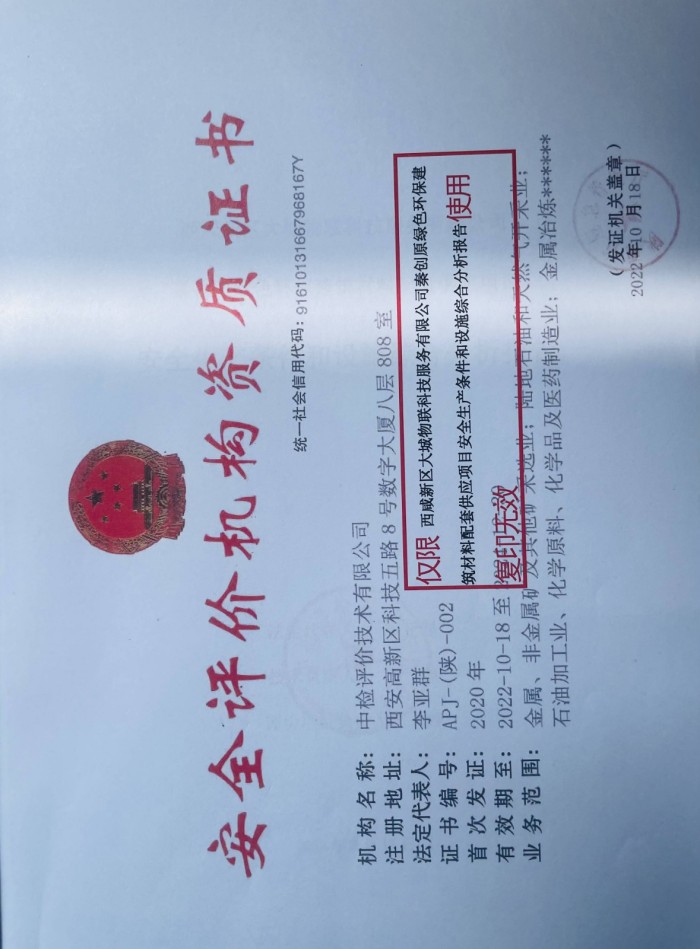 安全评价机构资质证书
统一社会信用代码：91610131667968167Y
机构名称：中检评价技术有限公司
注册地址：西安高新区科技五路8号数字大厦八层808室
法定代表人：李亚群
证书编号：APJ-(陕)-002
首次发证：2020年
有效期至：2022-10-18至
业务范围：金属、非金属矿及其他矿采选业；陆地石油和天然气开采业；
石油加工业、化学原料、化学品及医药制造业；金属冶炼******
仅限 西咸新区大城物联科技服务有限公司秦创原绿色环保建
筑材料配套供应项目安全生产条件和设施综合分析报告使用
复印无效
（发证机关盖章）
2022年10月18日